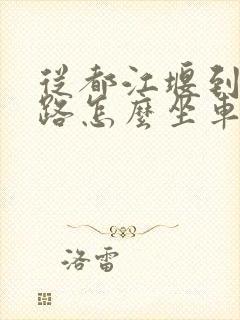 從都江堰到
路怎麼坐車
洛雷